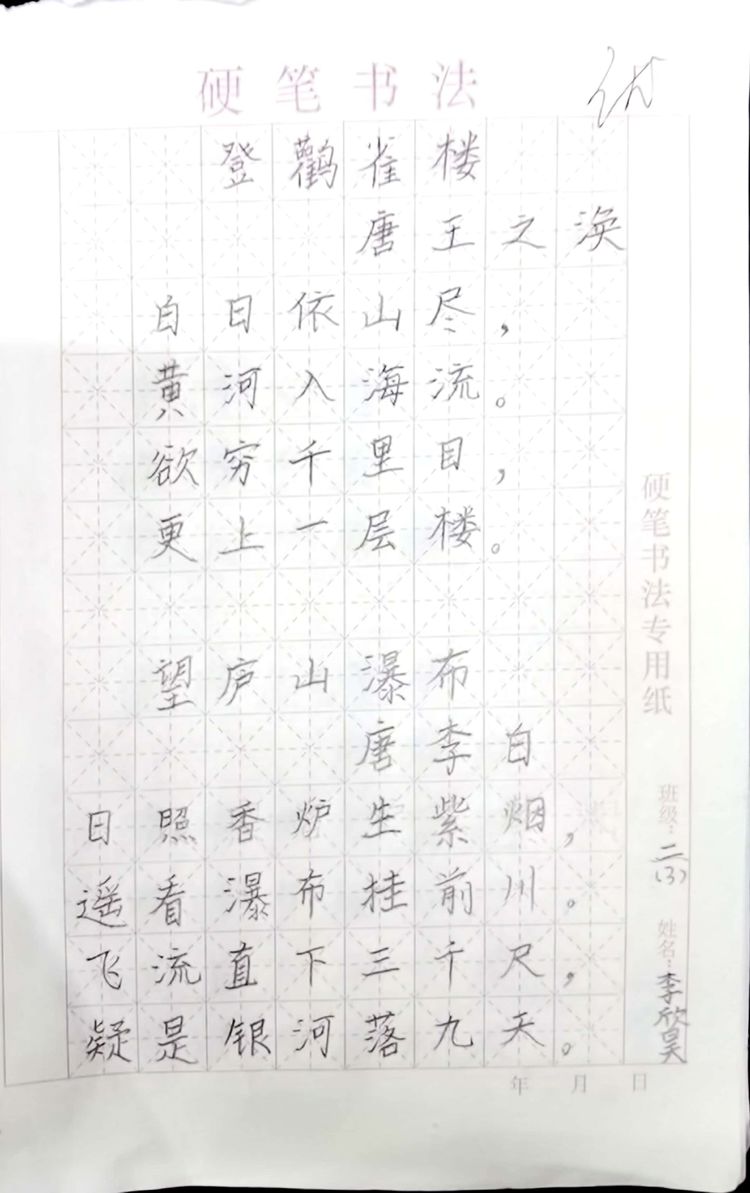 硬笔书法
优
登鹳雀楼
唐王之涣
白日依山尽，
黄河入海流。
欲穷千里目，
更上一层楼。
望庐山瀑布
唐李白
日照香炉生紫烟，
遥看瀑布挂前川。
飞流直下三千尺，
疑是银河落九天。
硬笔书法专用纸
班级：二(3)
姓名：李欣昊
年月日